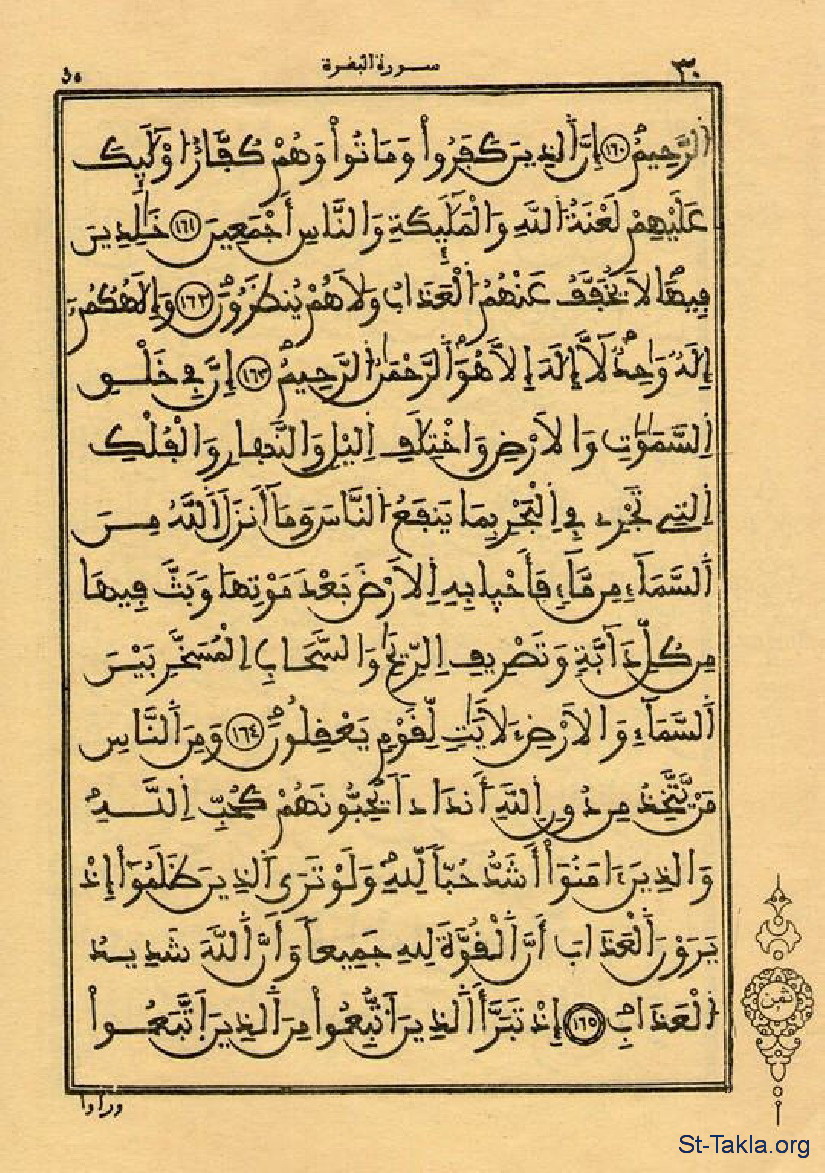 ٣٠ سورة البقرة
اَ۬لرَّحِيمُۖ (١٦٠) إِنَّ اَ۬لذِينَ كَفَرُواْ وَمَاتُواْ وَهُمْ كُفَّارٌ ا۟وْلَٰٓئِكَ
عَلَيْهِمْ لَعْنَةُ اُ۬للَّهِ وَالْمَلَٰٓئِكَةِ وَالنَّاسِ أَجْمَعِينَ (١٦١) خَٰلِدِينَ
فِيهَا لَا يُخَفَّفُ عَنْهُمُ اُ۬لْعَذَابُ وَلَا هُمْ يُنظَرُونَۖ (١٦٢) وَإِلَٰهُكُمُۥٓ
إِلَٰهٞ وَٰحِدٞ لَّآ إِلَٰهَ إِلَّا هُوَ اَ۬لرَّحْمَٰنُ اُ۬لرَّحِيمُۖ (١٦٣) إِنَّ فِي خَلْقِ
اِ۬لسَّمَٰوَٰتِ وَالَارْضِ وَاخْتِلَٰفِ اِ۬ليْلِ وَالنَّهارِ وَالْفُلْكِ
اِ۬لتِي تَجْرِي فِي اِ۬لْبَحْرِ بِمَا يَنفَعُ اُ۬لنَّاسَ وَمَآ أَنزَلَ اَ۬للَّهُ مِنَ
اَ۬لسَّمَآءِ مِن مَّآءٖ فَأَحْيا بِهِ اِ۬لَارْضَ بَعْدَ مَوْتِهَا وَبَثَّ فِيهَا
مِن كُلِّ دَآبَّةٖ وَتَصْرِيفِ اِ۬لرِّيَٰحِ وَالسَّحَابِ اِ۬لْمُسَخَّرِ بَيْنَ
اَ۬لسَّمَآءِ وَالَارْضِ ءَلَايَٰتٖ لِّقَوْمٖ يَعْقِلُونَۖ (١٦٤) وَمِنَ اَ۬لنَّاسِ
مَنْ يَّتَّخِذُ مِن دُونِ اِ۬للَّهِ أَندَاداٗ يُحِبُّونَهُمْ كَحُبِّ اِ۬للَّهِۖ
وَالذِينَ ءَامَنُوٓاْ أَشَدُّ حُبّاٗ لِّلهِۖ وَلَوْ تَرَى اَ۬لذِينَ ظَلَمُوٓاْ إِذْ
يَرَوْنَ اَ۬لْعَذَابَ أَنَّ اَ۬لْقُوَّةَ لِلهِ جَمِيعاٗ وَأَنَّ اَ۬للَّهَ شَدِيدُ
اُ۬لْعَذَابِۖ (١٦٥) إِذْ تَبَرَّأَ اَ۬لذِينَ اَ۟تُّبِعُواْ مِنَ اَ۬لذِينَ اَ۪تَّبَعُواْ
ثمن
ورأوا
St-Takla.org